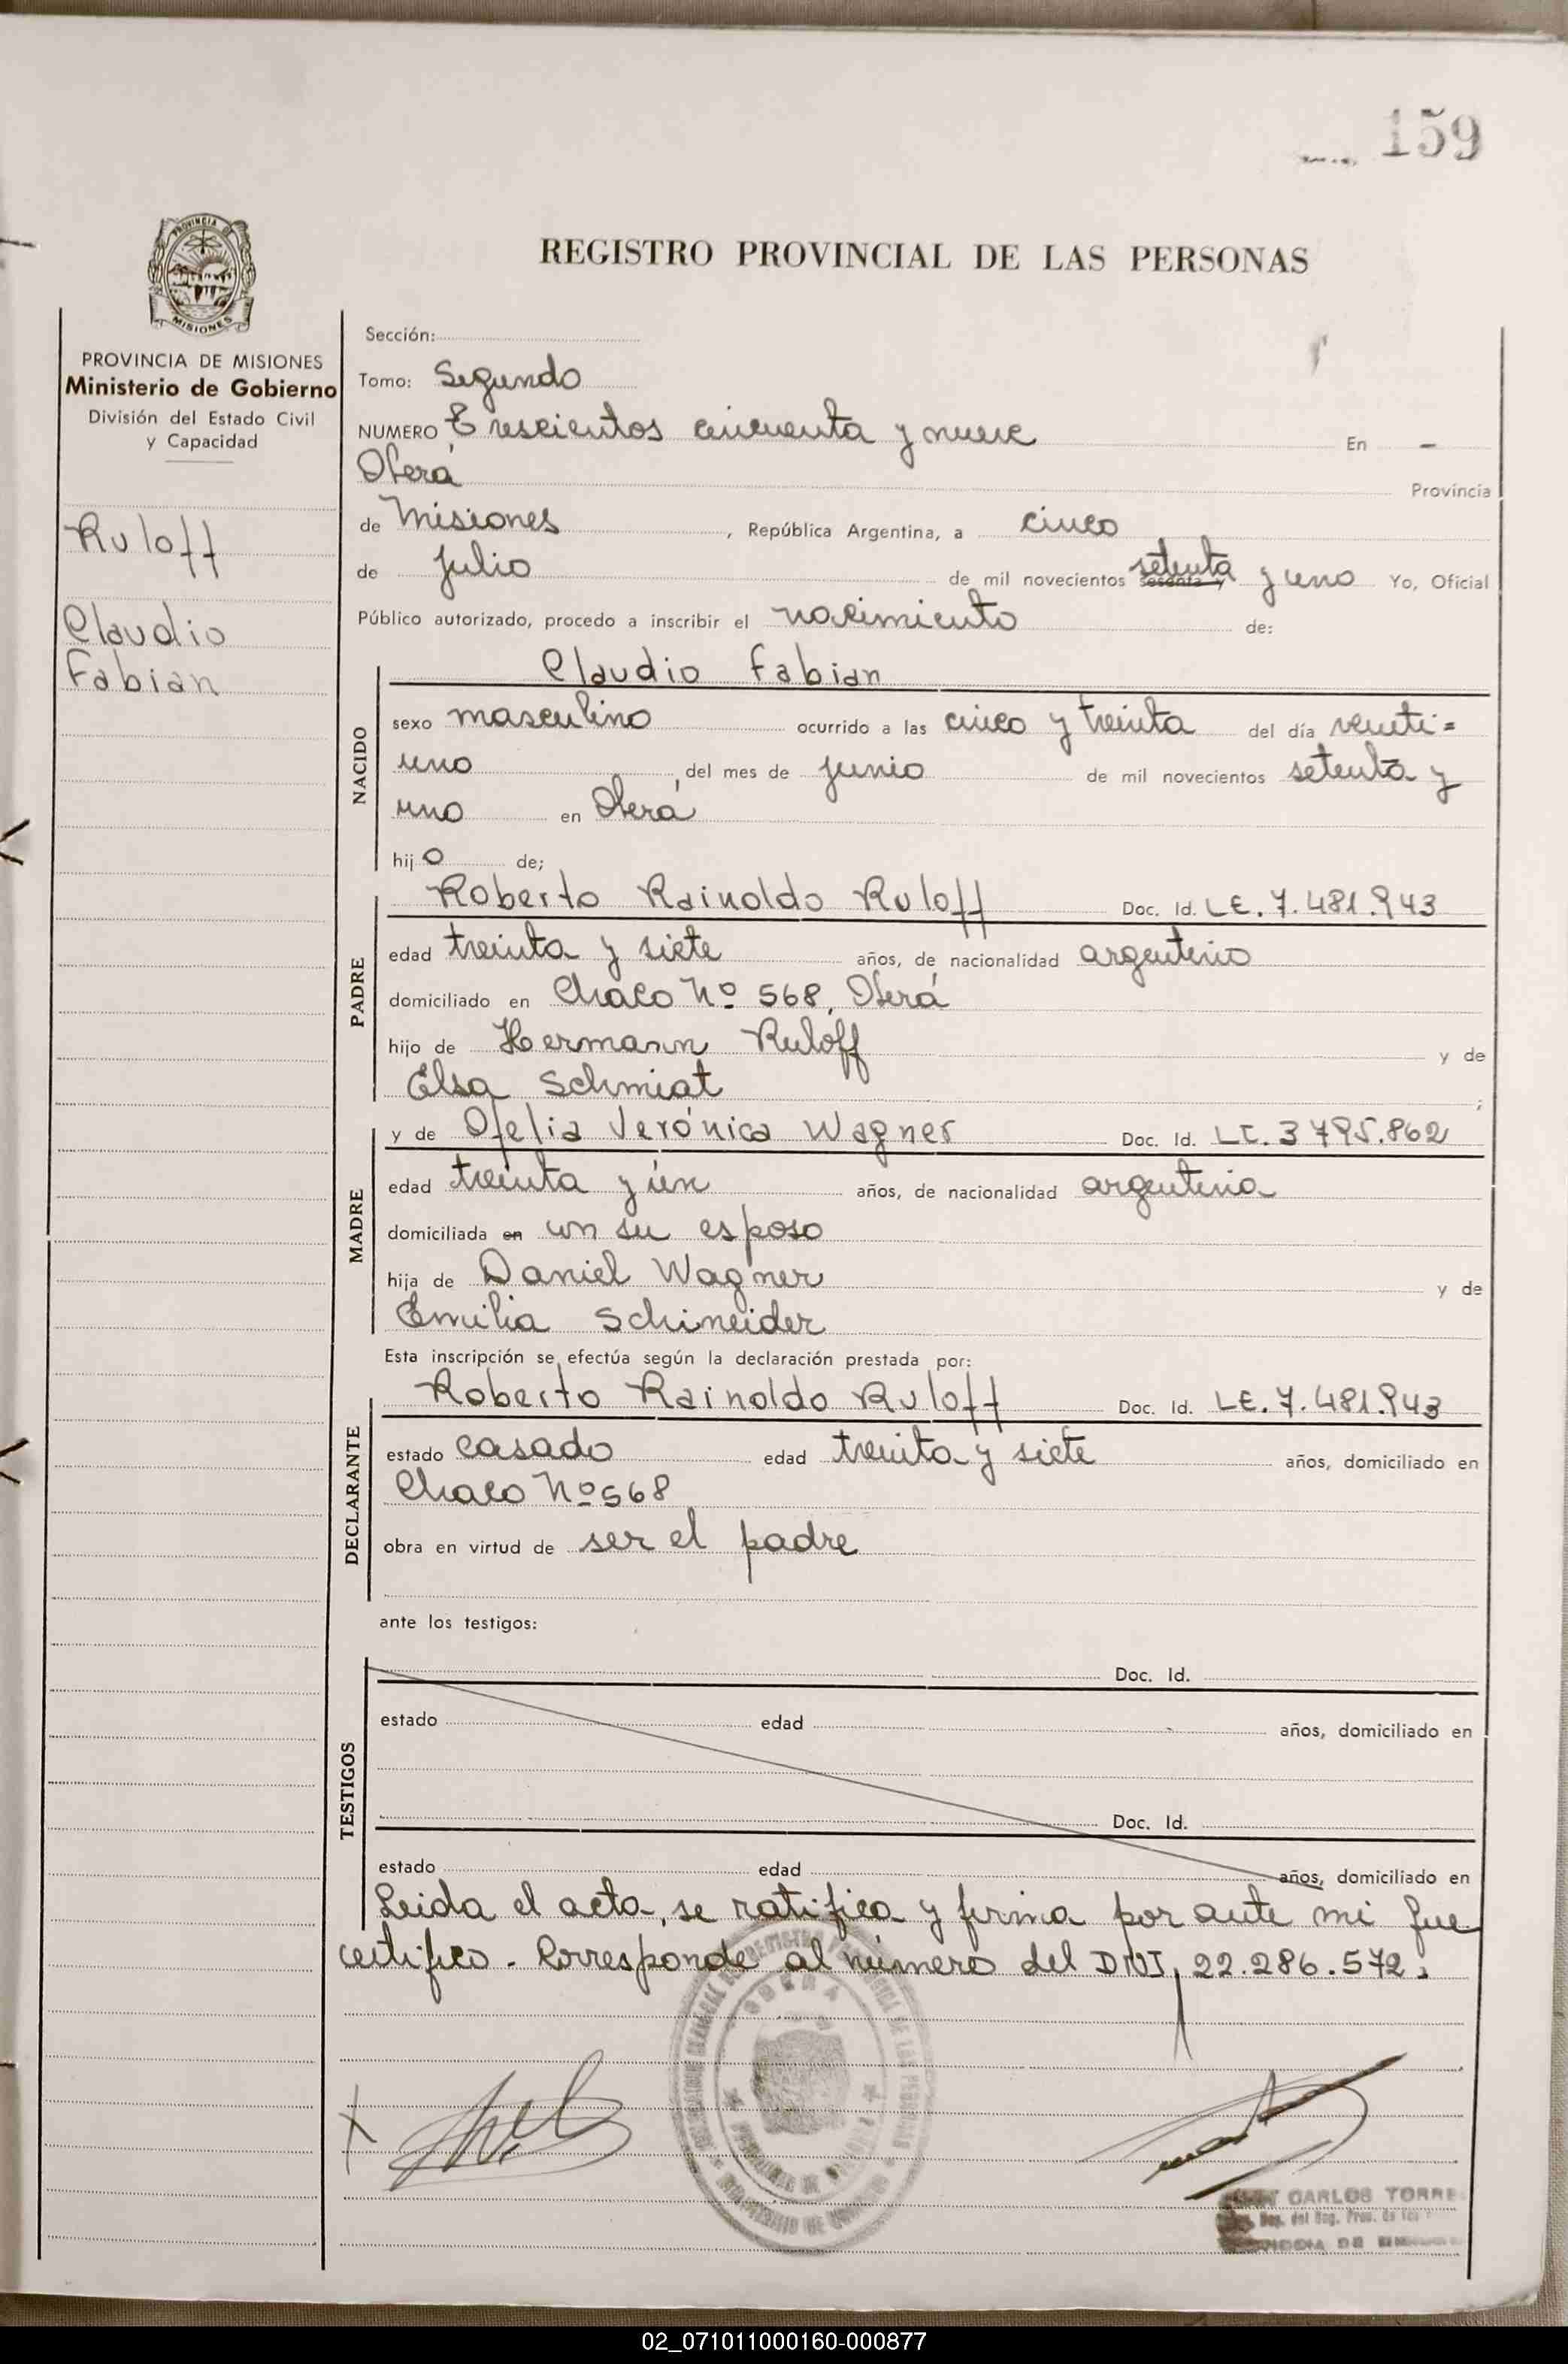 159
REGISTRO PROVINCIAL DE LAS PERSONAS
PROVINCIA DE
MISIONES
PROVINCIA DE MISIONES
Ministerio de Gobierno
División del Estado Civil
y Capacidad
Ruloff
Claudio
Fabian
Sección:
Tomo: Segundo
NUMERO Trescientos cincuenta y nueve En -
Oberá Provincia
de Misiones, República Argentina, a cinco
de julio de mil novecientos setenta y uno Yo, Oficial
Público autorizado, procedo a inscribir el nacimiento de:
NACIDO
Claudio Fabian
sexo masculino ocurrido a las cinco y treinta del día veinti=
uno, del mes de junio de mil novecientos setenta y
uno en Oberá
hijo de;
PADRE
Roberto Rainoldo Ruloff Doc. Id. LE. 7.481.943
edad treinta y siete años, de nacionalidad argentino
domiciliado en Chaco Nº 568, Oberá
hijo de Hermann Ruloff y de
Elsa Schmidt;
MADRE
y de Ofelia Verónica Wagner Doc. Id. LC. 3 795.862
edad treinta y un años, de nacionalidad argentina
domiciliada en con su esposo
hija de Daniel Wagner y de
Emilia Schineider
Esta inscripción se efectúa según la declaración prestada por:
DECLARANTE
Roberto Rainoldo Ruloff Doc. Id. LE. 7.481.943
estado casado edad treinta y siete años, domiciliado en
Chaco Nº 568
obra en virtud de ser el padre
ante los testigos:
TESTIGOS
Doc. Id.
estado edad años, domiciliado en
Doc. Id.
estado edad años, domiciliado en
Leida el acta, se ratifica y firma por ante mi que
certifico. Corresponde al número del DNI, 22.286.572.
OBERA
CARLOS TORRE
02_071011000160-000877